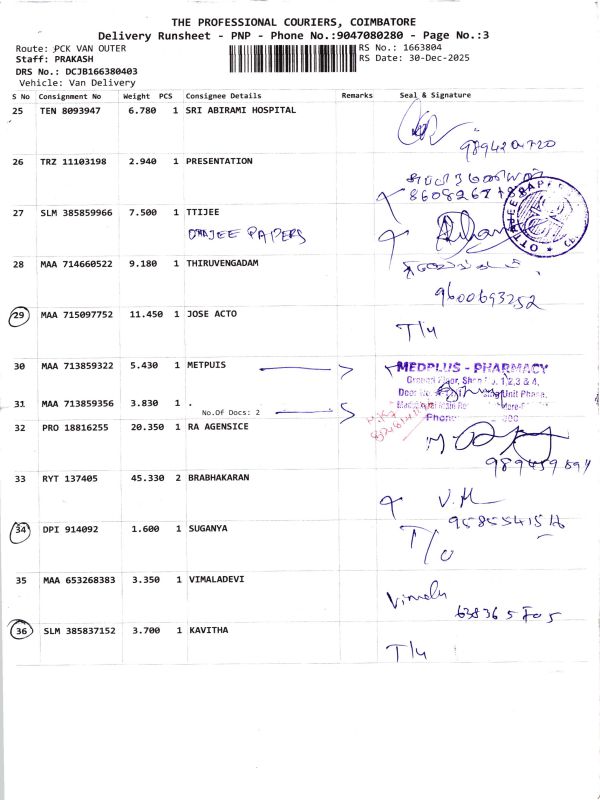 THE PROFESSIONAL COURIERS, COIMBATORE
Delivery Runsheet - PNP - Phone No.:9047080280 - Page No.:3
Route: PCK VAN OUTER
RS No.: 1663804
Staff: PRAKASH
RS Date: 30-Dec-2025
DRS No.: DCJB166380403
Vehicle: Van Delivery
S No Consignment No Weight PCS Consignee Details Remarks Seal & Signature
25 TEN 8093947 6.780 1 SRI ABIRAMI HOSPITAL
26 TRZ 11103198 2.940 1 PRESENTATION
27 SLM 385859966 7.500 1 TTIJEE
PAPERS
28 MAA 714660522 9.180 1 THIRUVENGADAM
9600693252
29 MAA 715097752 11.450 1 JOSE ACTO
T/4
30 MAA 713859322 5.430 1 METPUIS
MEDPLUS - PHARMACY
31 MAA 713859356 3.830 1 .
No.Of Docs: 2
32 PRO 18816255 20.350 1 RA AGENSICE
33 RYT 137405 45.330 2 BRABHAKARAN
V.M
34 DPI 914092 1.600 1 SUGANYA
T/0
35 MAA 653268383 3.350 1 VIMALADEVI
36 SLM 385837152 3.700 1 KAVITHA
T/4